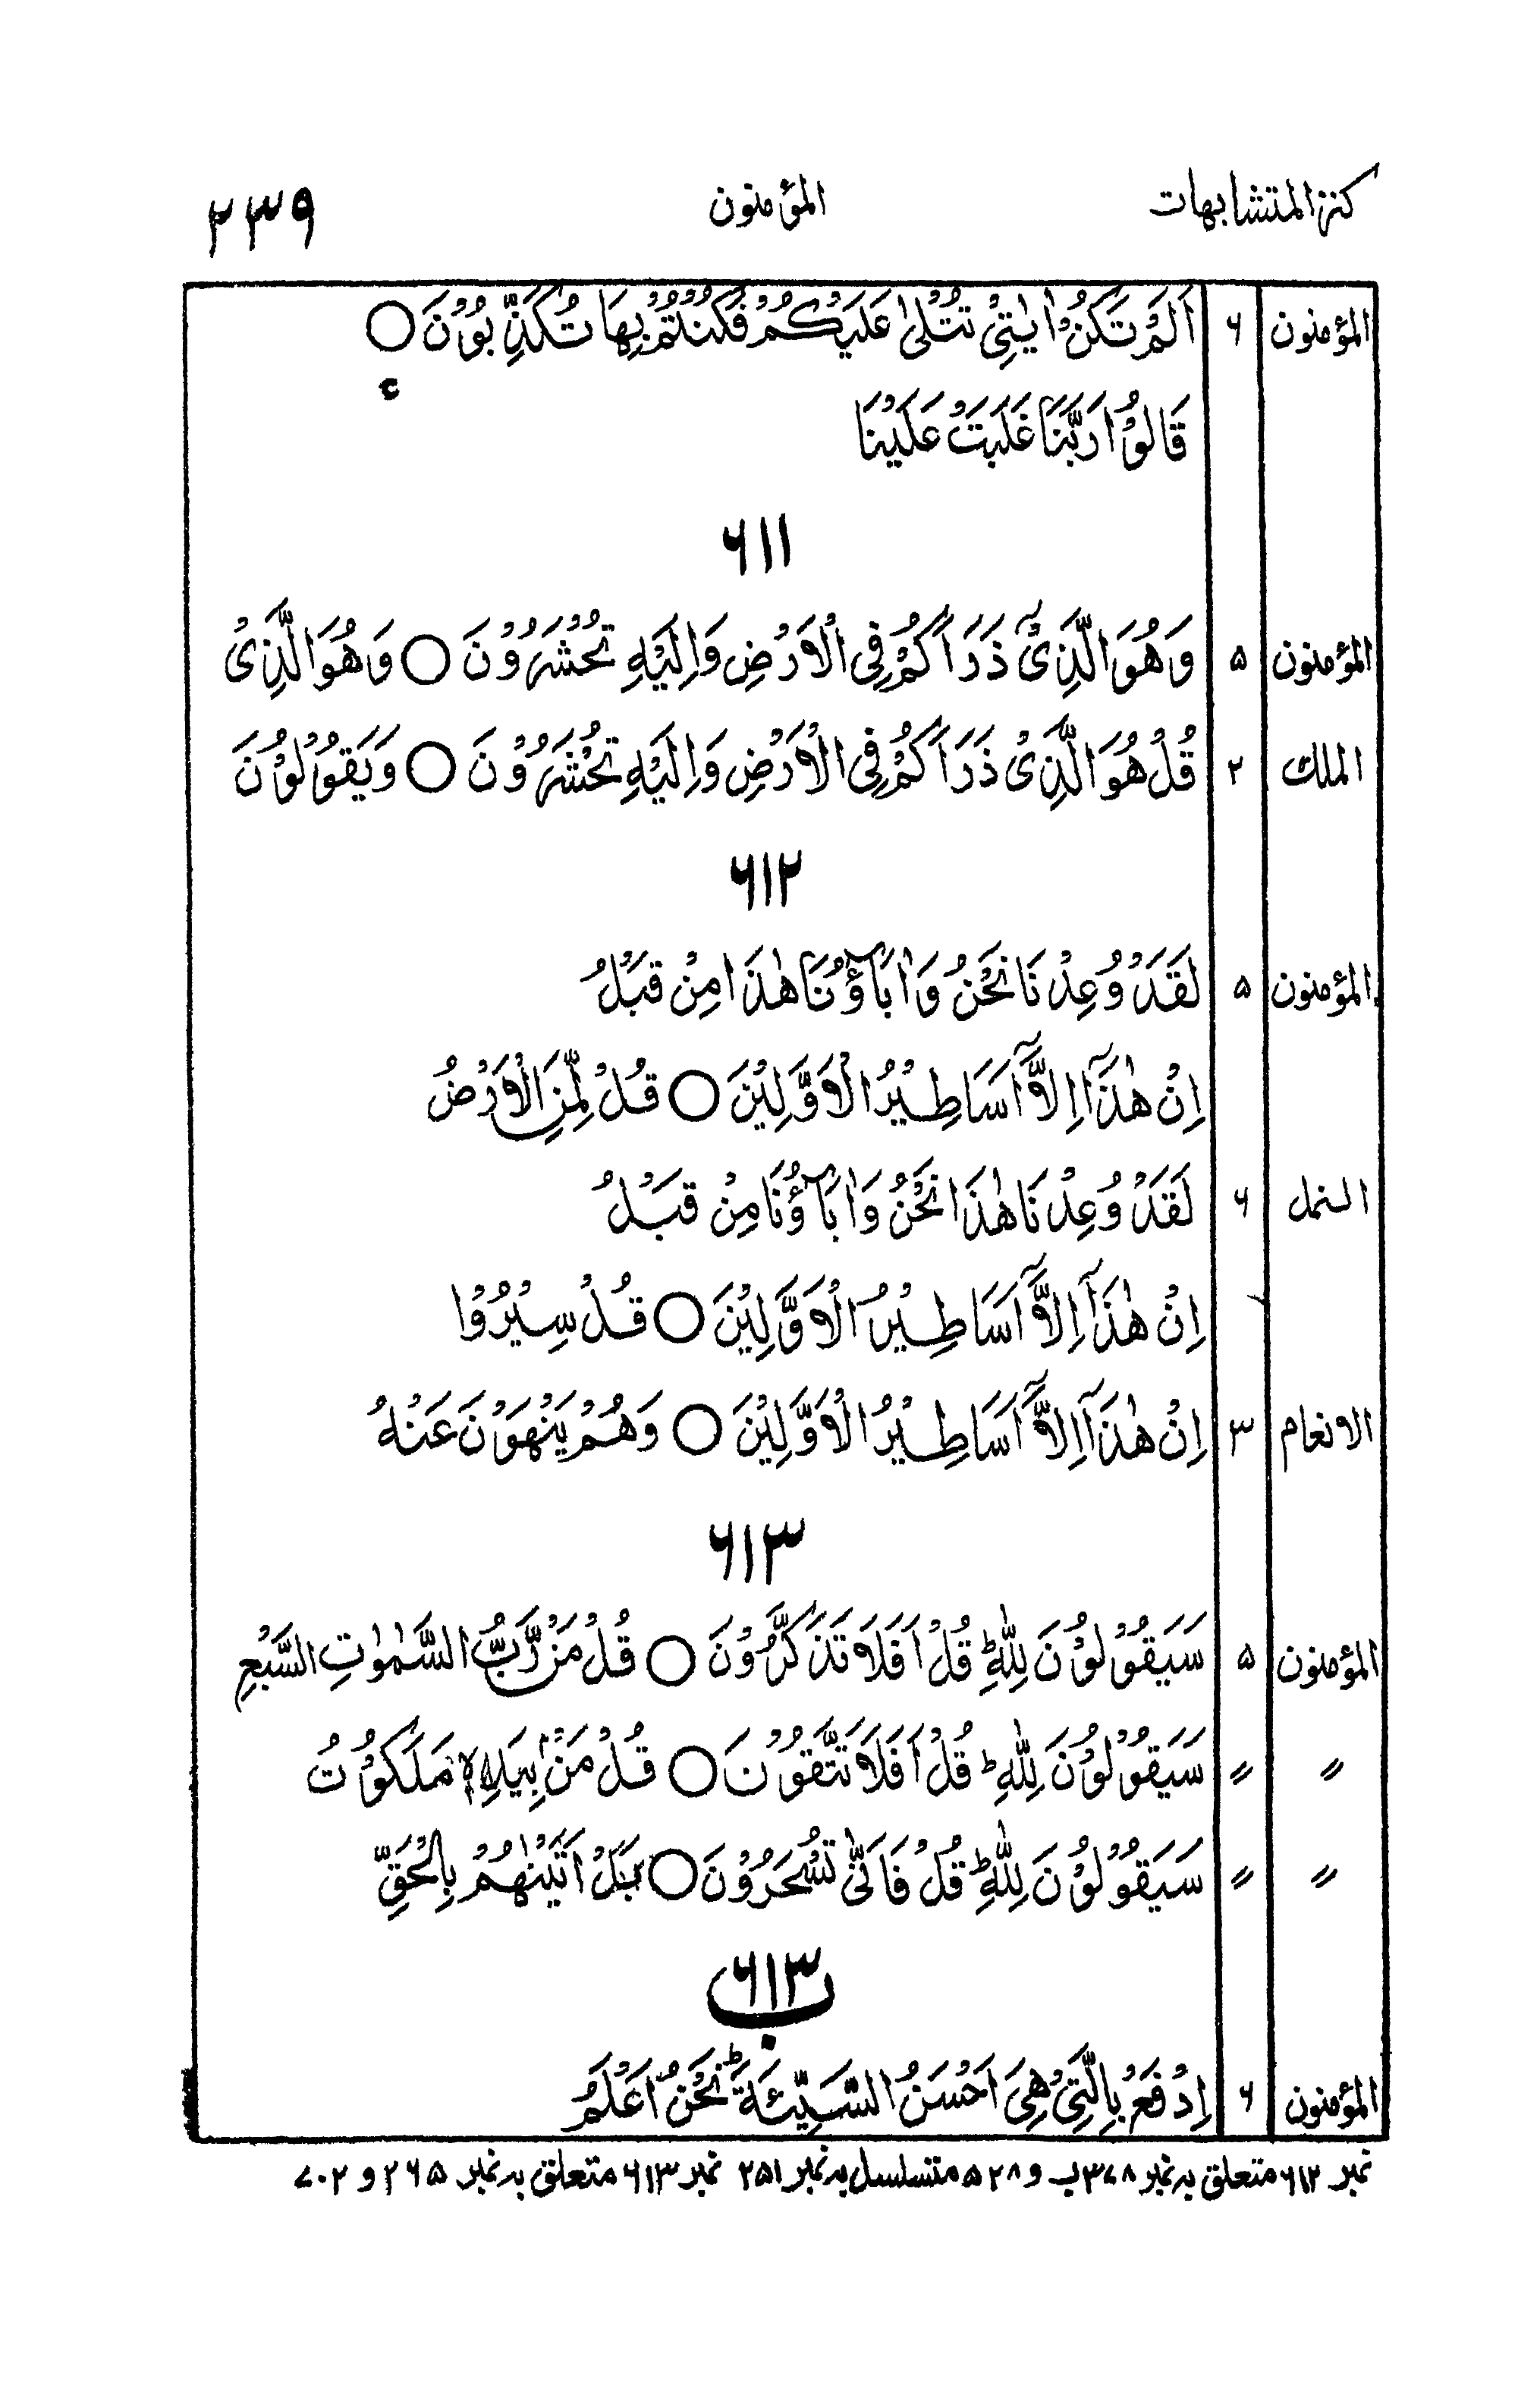 كنز المتشابهات المؤمنون ٢٣٩
المؤمنون ۶ اَلَمْ تَكُنْ اٰيٰتِيْ تُتْلٰى عَلَيْكُمْ فَكُنْتُمْ بِهَا تُكَذِّبُوْنَ ○
قَالُوْا رَبَّنَا غَلَبَتْ عَلَيْنَا
۶۱۱
المؤمنون ۵ وَهُوَ الَّذِيْ ذَرَاَكُمْ فِى الْاَرْضِ وَاِلَيْهِ تُحْشَرُوْنَ ○ وَهُوَ الَّذِيْ
الملك ۲ قُلْ هُوَ الَّذِيْ ذَرَاَكُمْ فِى الْاَرْضِ وَاِلَيْهِ تُحْشَرُوْنَ ○ وَيَقُوْلُوْنَ
۶۱۲
المؤمنون ۵ لَقَدْ وُعِدْنَا نَحْنُ وَاٰبَآؤُنَا هٰذَا مِنْ قَبْلُ
اِنْ هٰذَآ اِلَّآ اَسَاطِيْرُ الْاَوَّلِيْنَ ○ قُلْ لِّمَنِ الْاَرْضُ
النمل ۶ لَقَدْ وُعِدْنَا هٰذَا نَحْنُ وَاٰبَآؤُنَا مِنْ قَبْلُ
اِنْ هٰذَآ اِلَّآ اَسَاطِيْرُ الْاَوَّلِيْنَ ○ قُلْ سِيْرُوْا
الانعام ۳ اِنْ هٰذَآ اِلَّآ اَسَاطِيْرُ الْاَوَّلِيْنَ ○ وَهُمْ يَنْهَوْنَ عَنْهُ
۶۱۳
المؤمنون ۵ سَيَقُوْلُوْنَ لِلّٰهِ ؕ قُلْ اَفَلَا تَذَكَّرُوْنَ ○ قُلْ مَنْ رَّبُّ السَّمٰوٰتِ السَّبْعِ
〃 〃 سَيَقُوْلُوْنَ لِلّٰهِ ؕ قُلْ اَفَلَا تَتَّقُوْنَ ○ قُلْ مَنْۢ بِيَدِهٖ مَلَكُوْتُ
〃 〃 سَيَقُوْلُوْنَ لِلّٰهِ ؕ قُلْ فَاَنّٰى تُسْحَرُوْنَ ○ بَلْ اَتَيْنٰهُمْ بِالْحَقِّ
۶۱۳ ب
المؤمنون ۶ اِدْفَعْ بِالَّتِيْ هِيَ اَحْسَنُ السَّيِّئَةَ ؕ نَحْنُ اَعْلَمُ
نمبر ۶۱۲ متعلق بہ نمبر ۳۷۸ ب و ۵۲۸ متسلسل بہ نمبر ۲۵۱ نمبر ۶۱۳ متعلق بہ نمبر ۲۶۵ و ۷۰۲